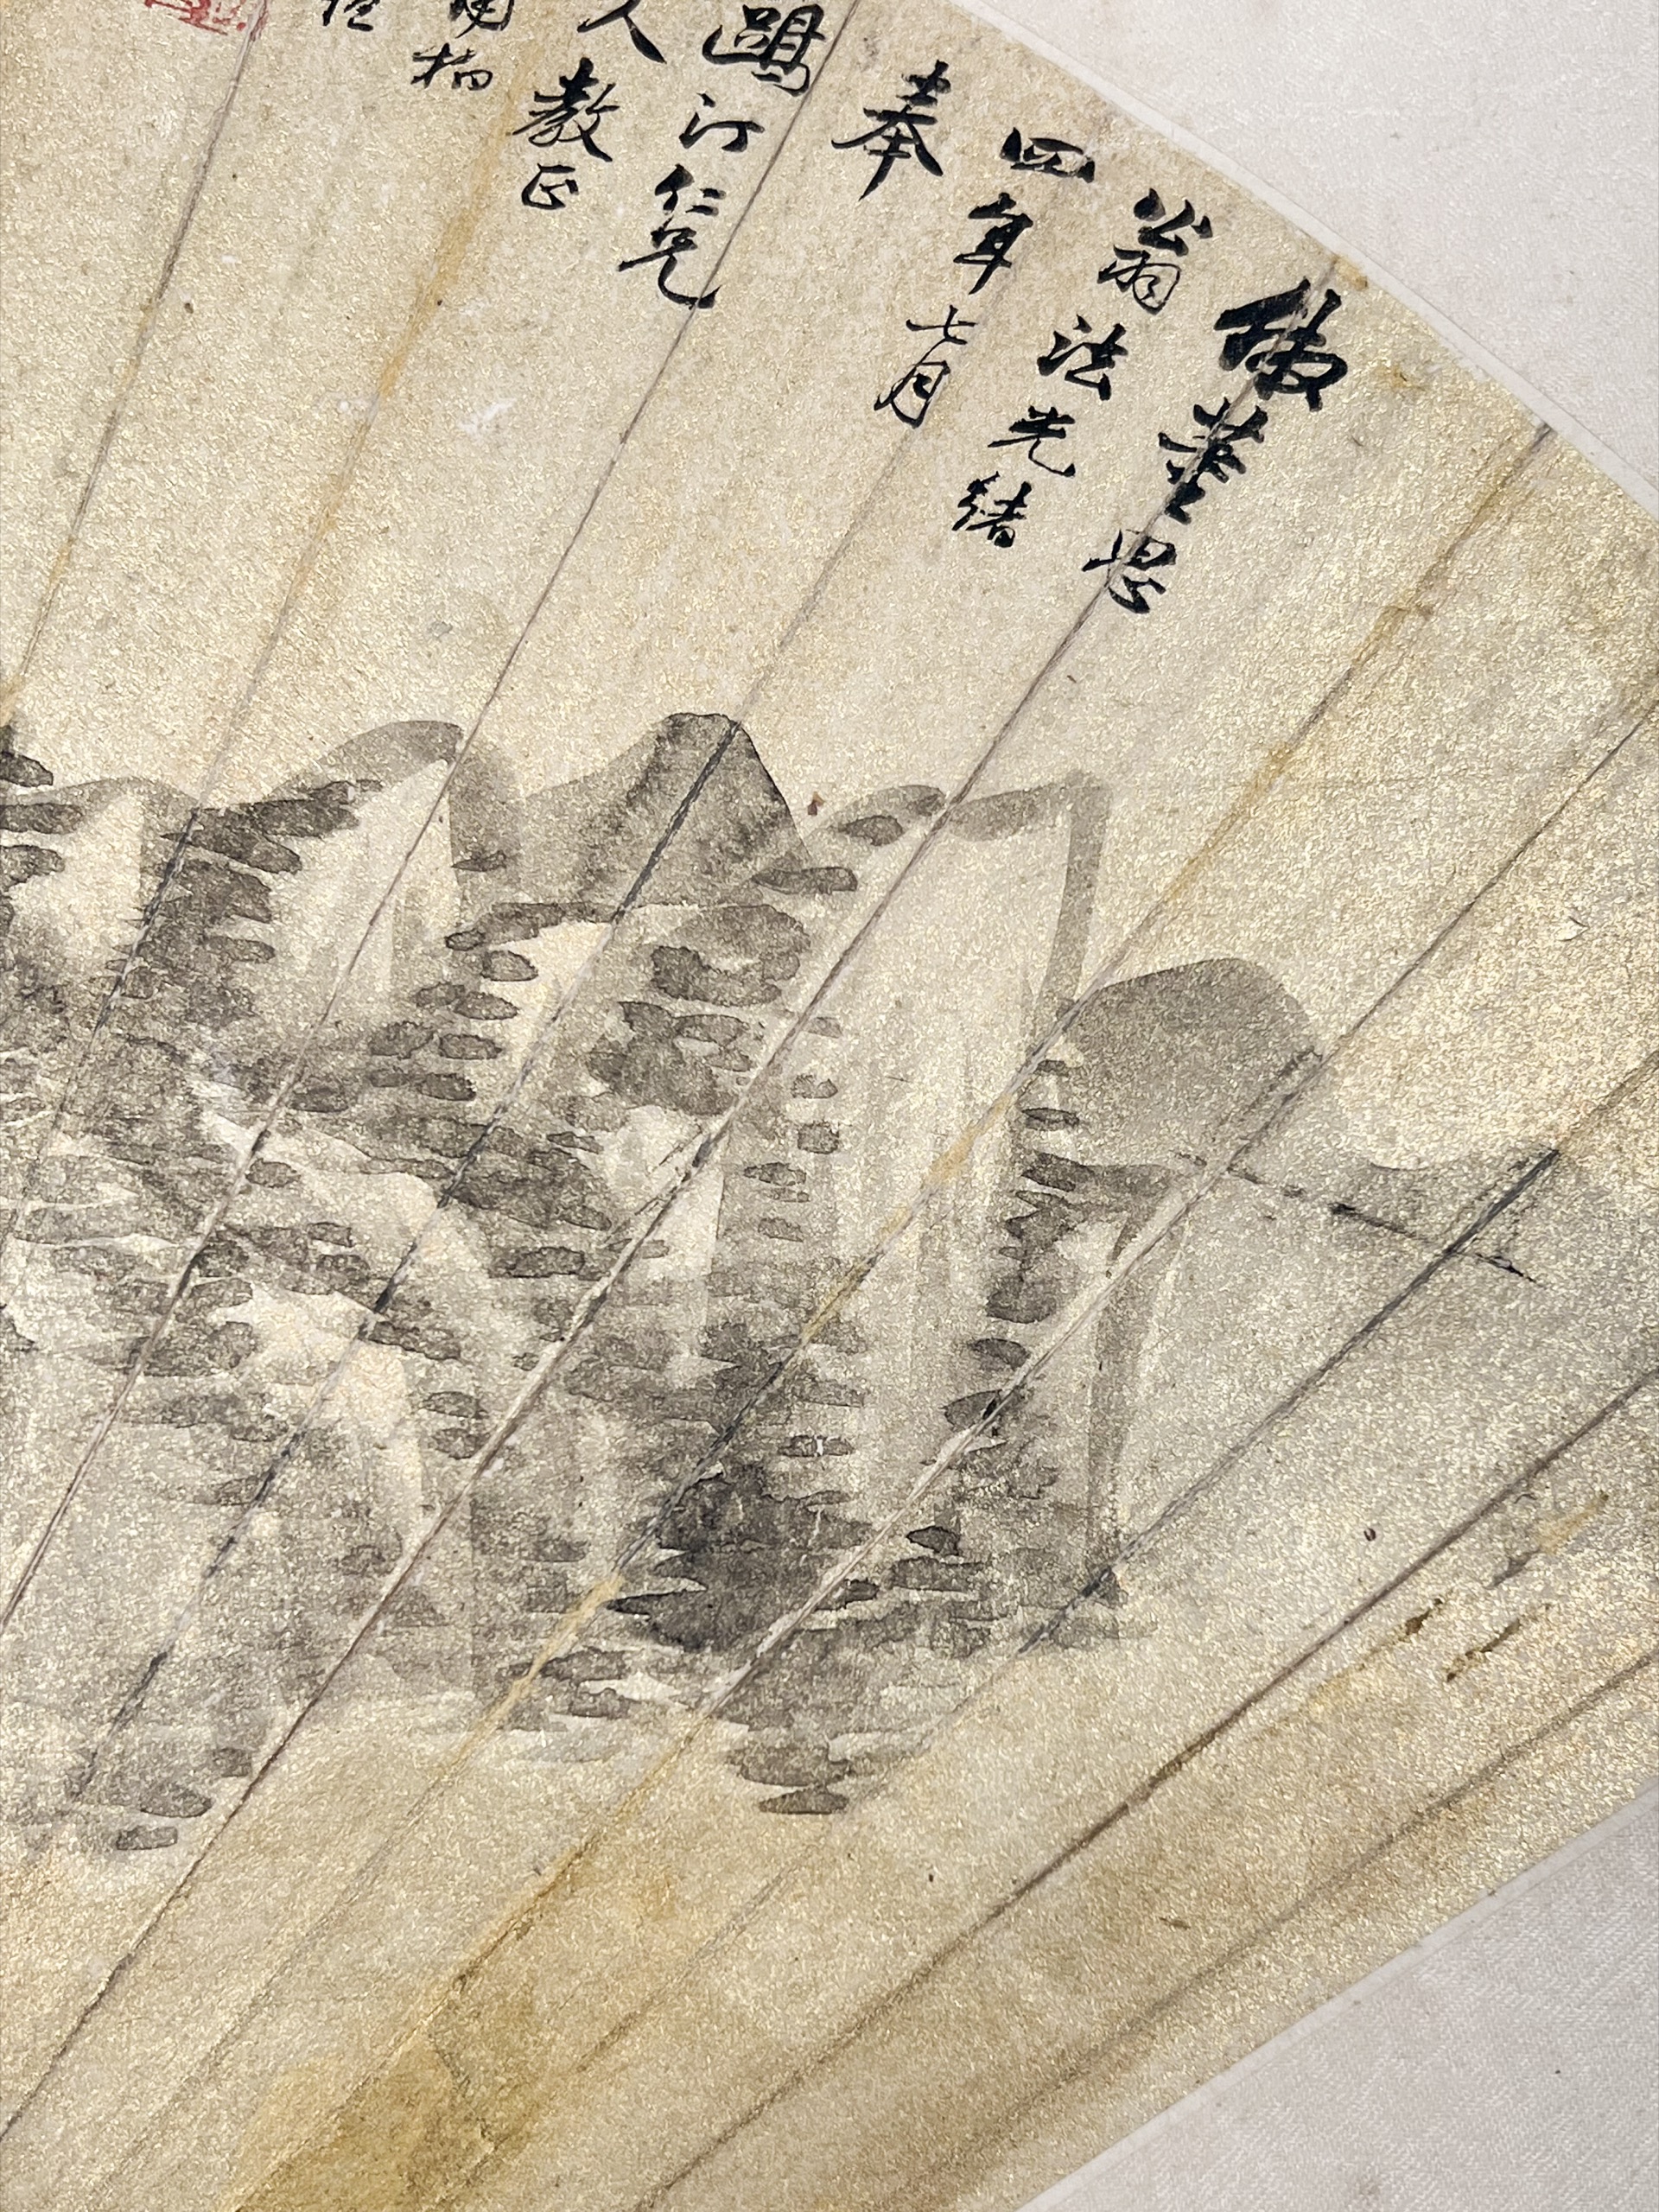 倣董思
翁法光緒
四年七月
奉
鷗汀仁兄
大人教正